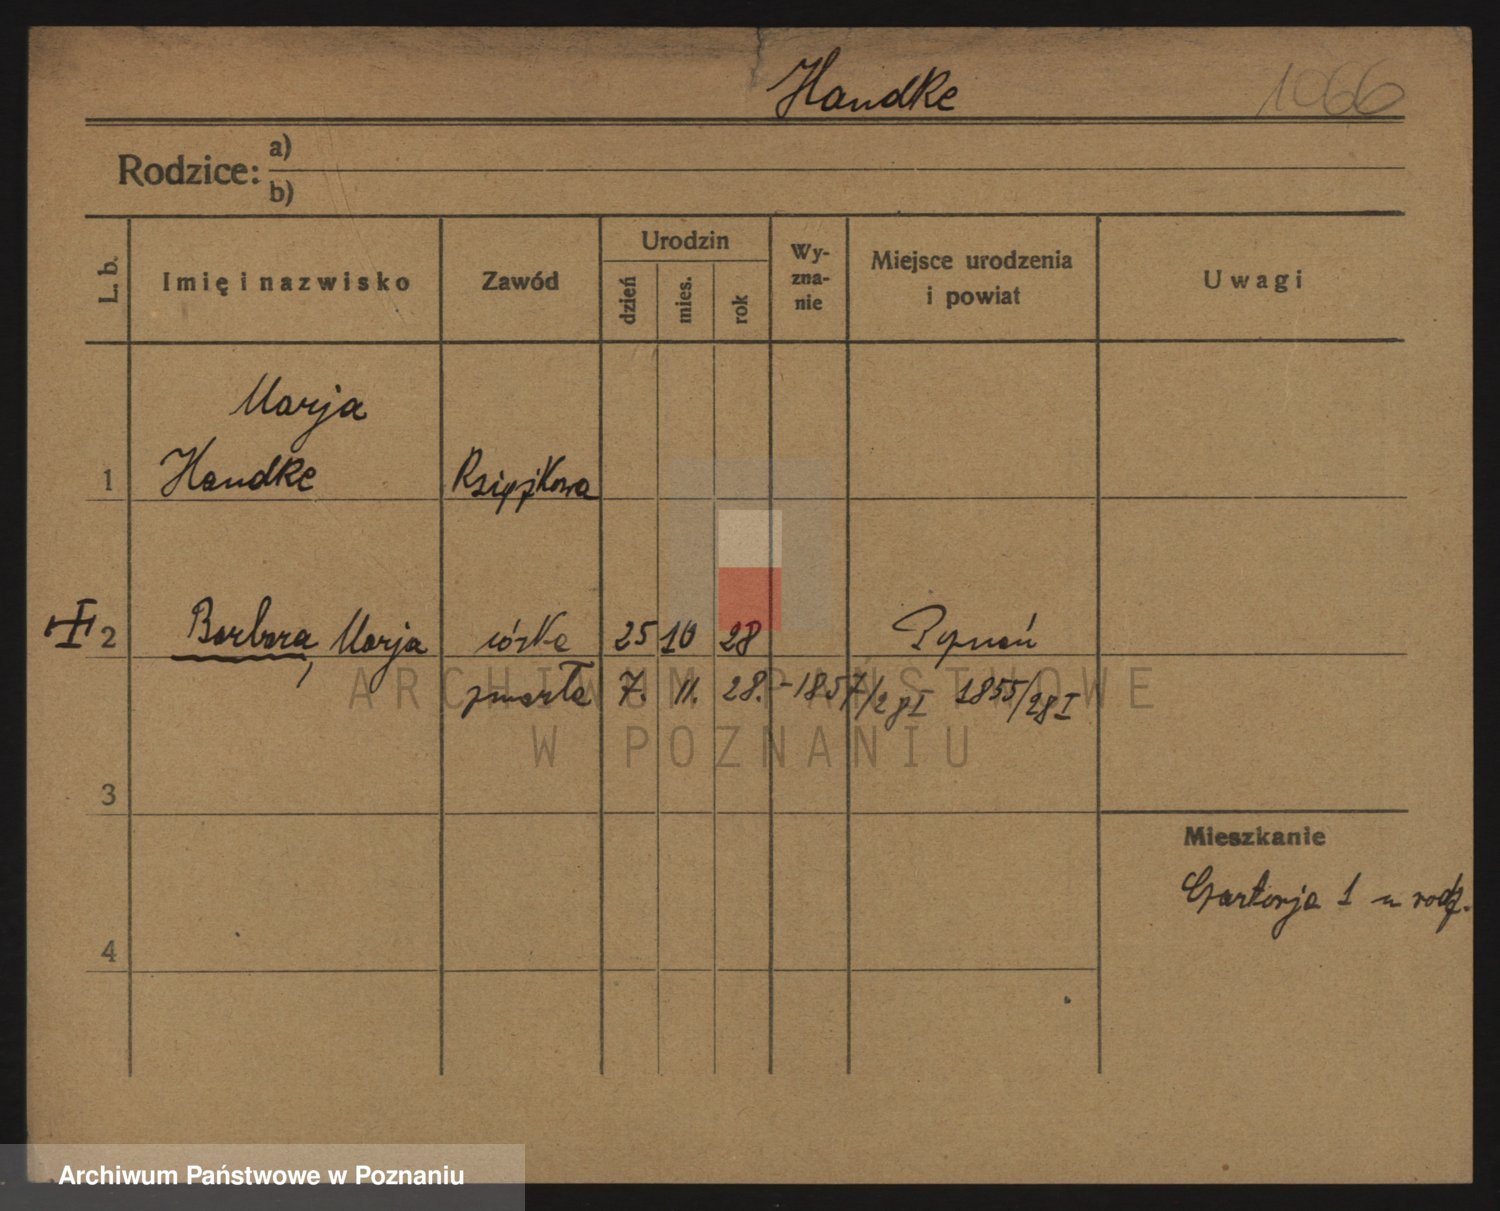 Handke 1066
Rodzice: a)
b)
L. b. Imię i nazwisko Zawód Urodzin dzień mies. rok Wy-zna-nie Miejsce urodzenia i powiat Uwagi
Marja
1 Handke Książkowa
2 Barbara, Marja córka 25 10 28 Poznań
zmarła 7. 11. 28. - 1857/28 I 1855/28 I
ARCHIWUM PAŃSTWOWE
W POZNANIU
3
Mieszkanie
1 u rodz.
4
Archiwum Państwowe w Poznaniu